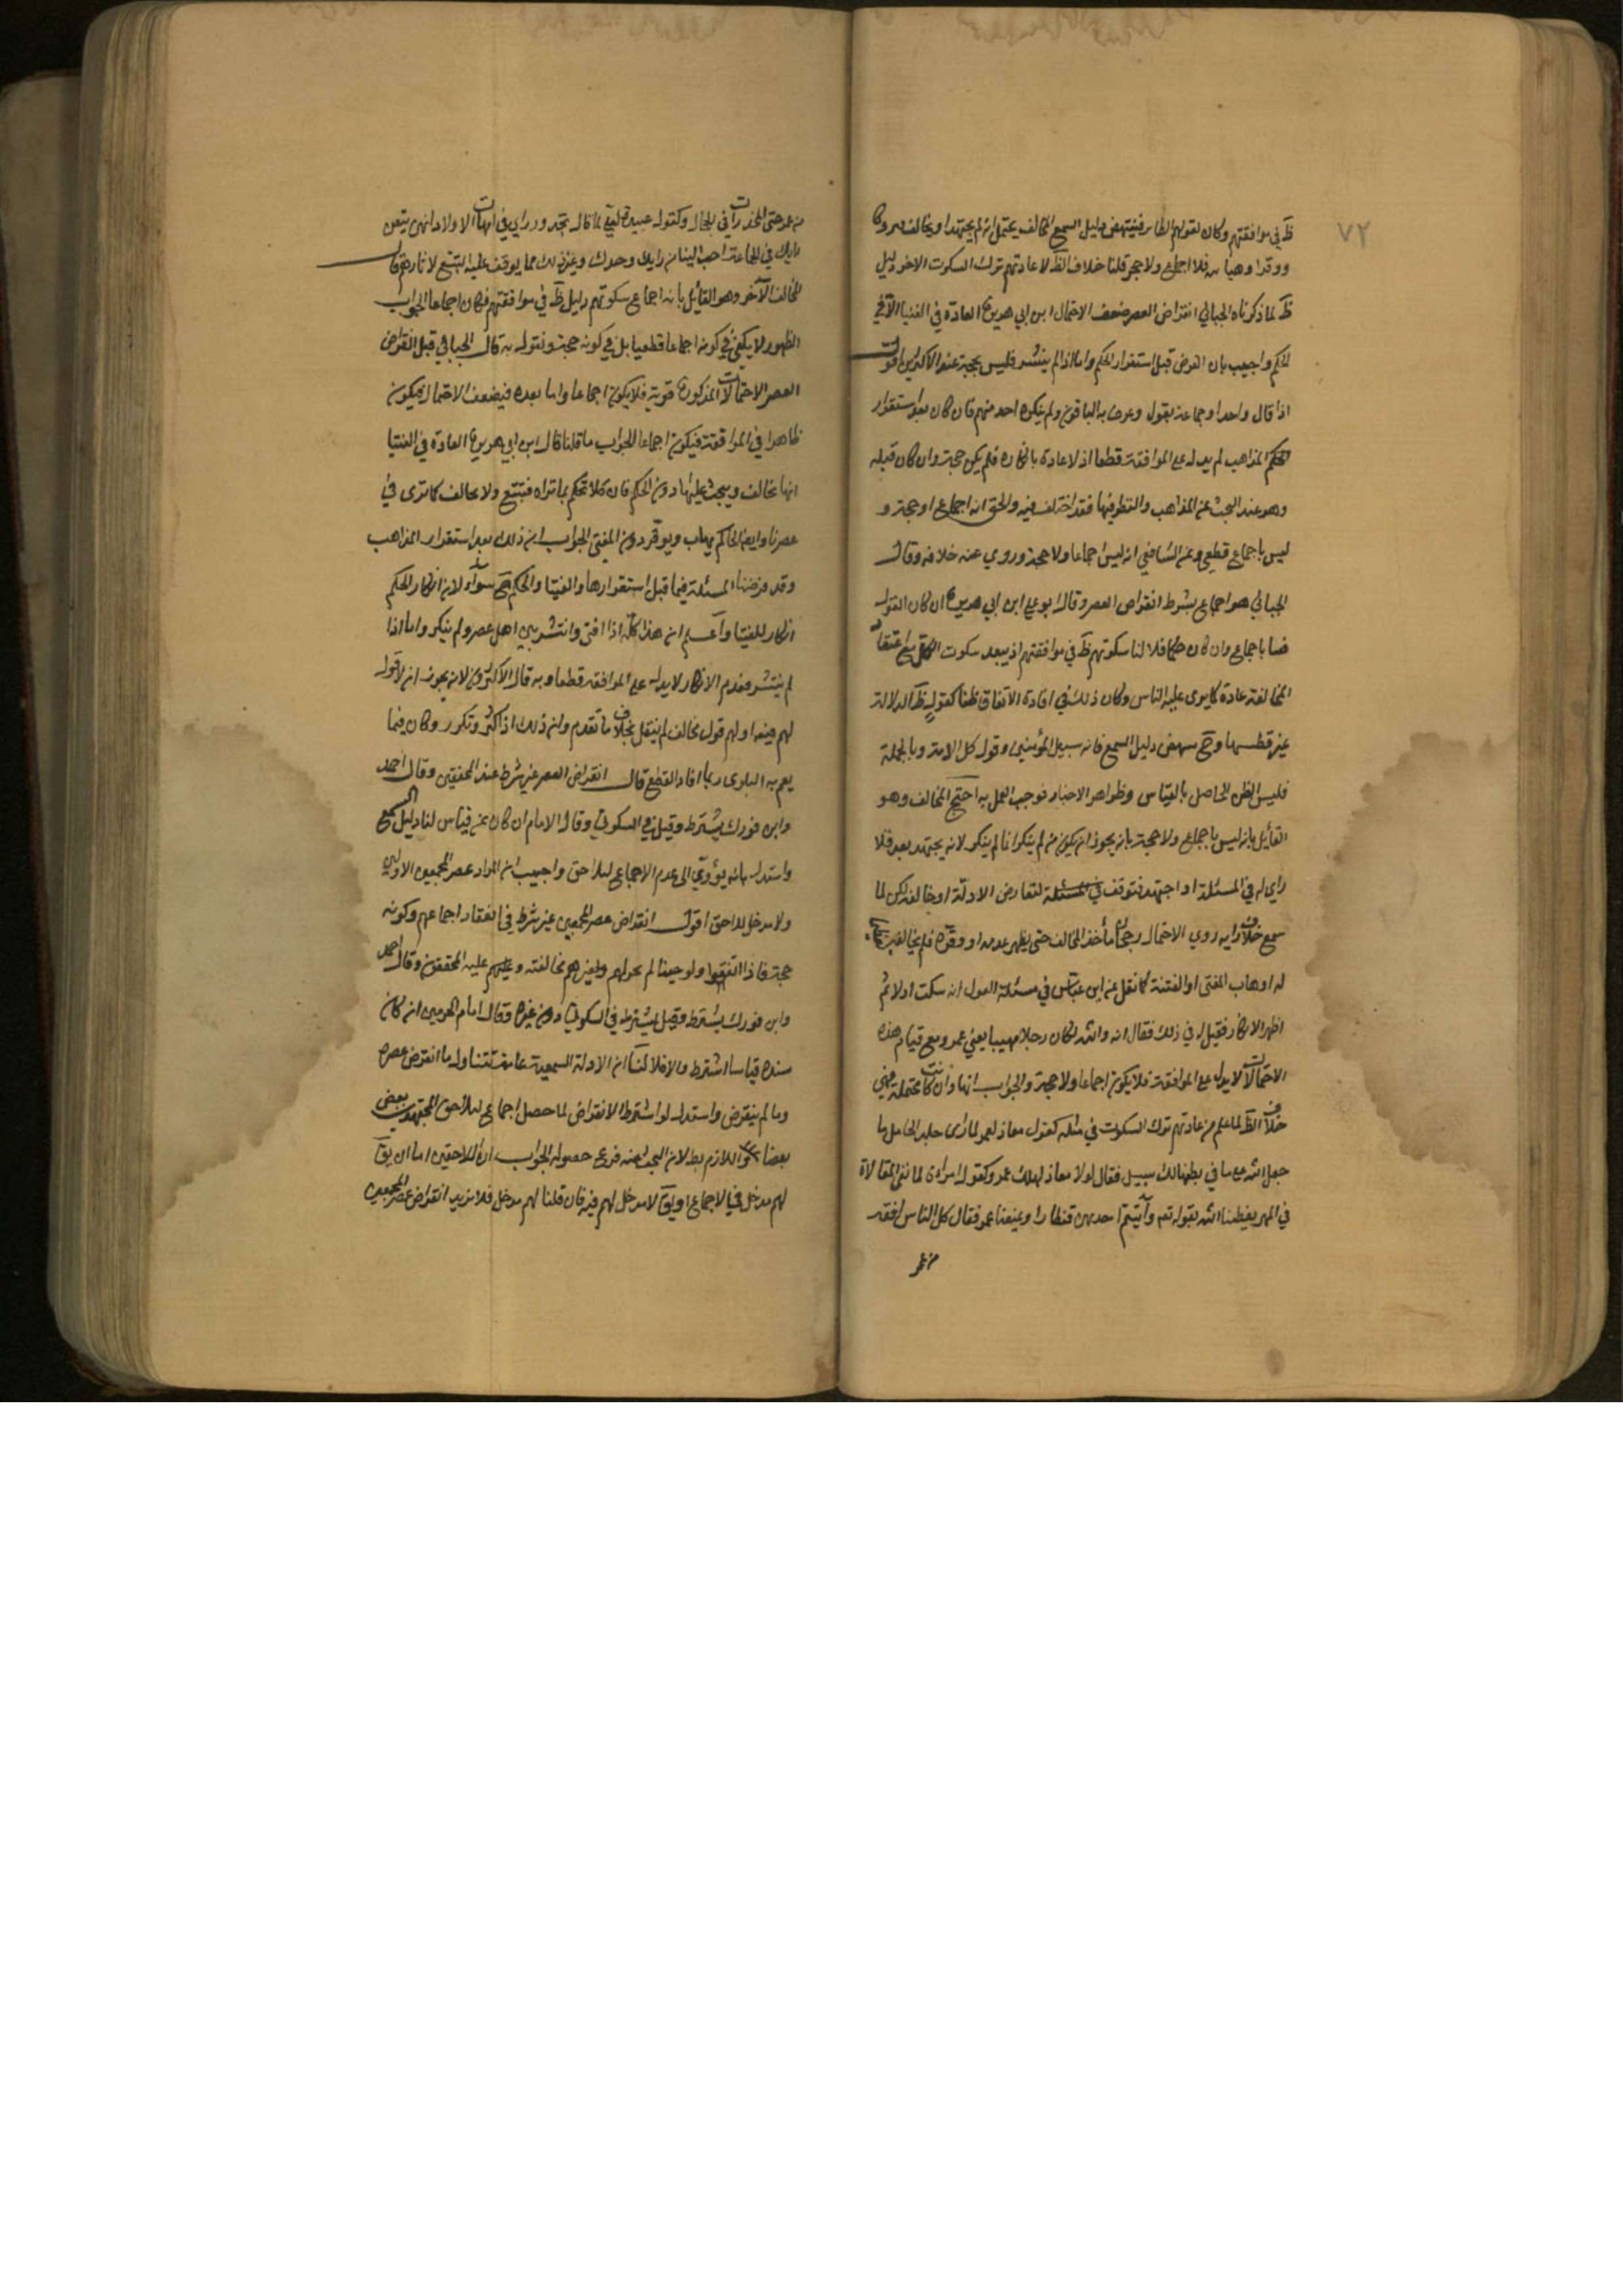 ٧٢
ظ في موافقتهم وكان كقولهم الظاهر فينتهض دليل السمع المخالف يحتمل انه لم يجتهد او
ووقر او هاب فلا اجماع ولا حجة قلنا خلاف الظ لا عادتهم ترك السكوت الاخر دليل
ظ لما ذكرناه الجبائي انقراض العصر يضعف الاحتمال ابن ابي هريرة العادة في الفتيا لا في
الحكم واجيب بان الفرض قبل استقرار الحكم واما اذا لم ينتشر فليس بحجة عند الاكثرين اقول
اذا قال واحد او جماعة بقول وعرف به الباقون ولم ينكره احد منهم فان كان بعد استقرار
المذاهب لم يدل على الموافقة قطعا اذ لا عادة بانكاره فلم يكن حجة وان كان قبله
وهو عند البحث عن المذاهب والنظر فيها فقد اختلف فيه والحق انه اجماع او حجة و
ليس باجماع قطعي وعن الشافعي انه ليس اجماعا ولا حجة وروي عنه خلافه وقال
الجبائي هو اجماع بشرط انقراض العصر وقال ابو علي ابن ابي هريرة ان كان القول
فتيا باجماع وان كان حكما فلا لنا سكوتهم ظ في موافقتهم اذ يبعد سكوت الكل مع اعتقاد
المخالفة عادة كما يرى عليه الناس وكان ذلك في افادة الاتفاق ظنا كقول ظ الدلالة
غير قطعيها وح ينتهض دليل السمع فانه سبيل المؤمنين وقول كل الامة وبالجملة
فليس الظن الحاصل بالقياس وظواهر الاخبار فوجب العمل به احتج المخالف وهو
القائل بانه ليس باجماع ولا حجة بانه يجوز ان يكون من لم ينكر انما لم ينكر لانه لم يجتهد بعد فلا
راي له في المسئلة او اجتهد فتوقف في المسئلة لتعارض الادلة او خالف لكن لما
سمع خلاف رايه روي الاحتمال رجحان مأخذ المخالف حتى يظهر عدمه او وقره فلم يخالفه
له او هاب المفتي او الفتنة كما نقل عن ابن عباس في مسئلة العول انه سكت اولا ثم
اظهر الانكار فقيل له في ذلك فقال انه والله لكان رجلا مهيبا يعني عمر ومع قيام هذه
الاحتمالات لا يدل على الموافقة فلا يكون اجماعا ولا حجة والجواب انها وان كانت محتملة فهي
خلاف الظ لما علم من عادتهم ترك السكوت في مثله كقول معاذ لعمر لما رأى جلد الحامل ما
جعل الله على ما في بطنها لك سبيل فقال لولا معاذ لهلك عمر وكقول امراة لما نفى المغالاة
في المهر يعطينا الله بقوله تع وآتيتم احديهن قنطارا ويمنعنا عمر فقال كل الناس افقه
من عمر
من عمر حتى المخدرات في الحجال وكقول عبيدة لعلي لما قال تجدد راي في امهات الاولاد انهن يبعن
رايك في الجماعة احب الينا من رايك وحدك وغير ذلك مما يوقف عليه التتبع لاثارهم قال
المخالف الآخر وهو القائل بانه اجماع سكوتهم دليل ظ في موافقتهم فكان اجماعا الجواب
الظهور لا يكفي في كونه اجماعا قطعيا بل في كونه حجة ونقول به قال الجبائي قبل انقراض
العصر الاحتمالات المذكورة قوية فلا يكون اجماعا واما بعده فيضعف الاحتمال فيكون
ظاهرا في الموافقة فيكون اجماعا الجواب ما قلنا قال ابن ابي هريرة العادة في الفتيا
انها تخالف ويبحث عليها دون الحكم فان كلا تحكم بما تراه فيتبع ولا يخالف كما ترى في
عصرنا وايضا الحاكم يهاب ويوقر دون المفتي الجواب ان ذلك بعد استقرار المذاهب
وقد فرضنا المسئلة فيما قبل استقرارها والفتيا والحكم ح سواء لان انكار الحكم
انكار للفتيا واعلم ان هذا كله اذا افتى وانتشر بين اهل عصره ولم ينكر واما اذا
لم ينتشر فعدم الانكار لا يدل على الموافقة قطعا وبه قال الاكثرون لانه يجوز ان لا قول
لهم فيه او لهم قول مخالف لم ينقل بخلاف ما تقدم ولان ذلك اذا كثر وتكرر وكان فيما
يعم به البلوى ربما افاد القطع قال انقراض العصر غير شرط عند المحققين وقال احمد
وابن فورك يشترط وقيل في السكوتي وقال الامام ان كان عن قياس لنا دليل السمع
واستدل بانه يؤدي الى عدم الاجماع لتلاحق واجيب ان المراد عصر المجمعين الاولين
ولا مدخل للاحق اقول انقراض عصر المجمعين غير شرط في انعقاد اجماعهم وكونه
حجة فاذا اتفقوا ولو حينا لم يجز لهم ولغيرهم مخالفته وعليه المحققون وقال احمد
وابن فورك يشترط وقيل يشترط في السكوتي دون غيره وقال امام الحرمين ان كان
سنده قياسا اشترط والا فلا لنا ان الادلة السمعية عامة تتناول ما انقرض عصره
وما لم ينقرض واستدل لو اشترط الانقراض لما حصل اجماع لتلاحق المجتهدين بعض
بعضا واللازم بطلان البحث عنه فرع حصوله الجواب ان اللاحقين اما ان يق
لهم مدخل في الاجماع او يق لا مدخل لهم فيه فان قلنا لهم مدخل فلا نريد انقراض عصر المجمعين